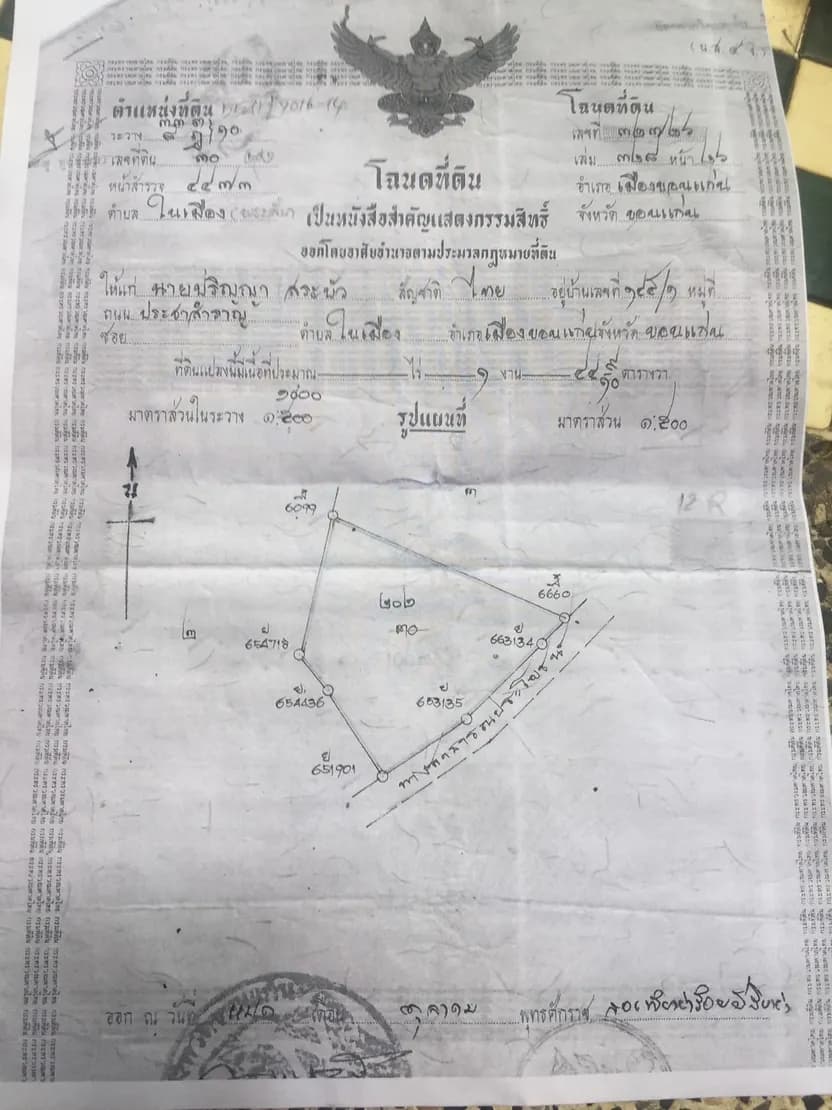 (น.ส. ๔ จ.)
ตำแหน่งที่ดิน
ระวาง
เลขที่ดิน ๓๐
หน้าสำรวจ ๔๔๗๓
ตำบล ในเมือง
โฉนดที่ดิน
เลขที่
เล่ม ๓๒๘ หน้า
อำเภอ เมืองขอนแก่น
จังหวัด ขอนแก่น
โฉนดที่ดิน
เป็นหนังสือสำคัญแสดงกรรมสิทธิ์
ออกโดยอาศัยอำนาจตามประมวลกฎหมายที่ดิน
ให้แก่ นายปริญญา สระบัว สัญชาติ ไทย อยู่บ้านเลขที่ ๑๔๕/๑ หมู่ที่
ถนน ประชาสำราญ
ซอย ตำบล ในเมือง อำเภอ เมืองขอนแก่น จังหวัด ขอนแก่น
ที่ดินแปลงนี้มีเนื้อที่ประมาณ ไร่ ๑ งาน ตารางวา
๑๐๐๐
มาตราส่วนในระวาง ๑:๕๐๐ รูปแผนที่ มาตราส่วน ๑:๕๐๐
น
๓
12 R
6660
๒๐๒
๒
๓๐
663134
654718
654436
663135
651901
ทางสาธารณประโยชน์
ออก ณ วันที่ เดือน ตุลาคม พุทธศักราช